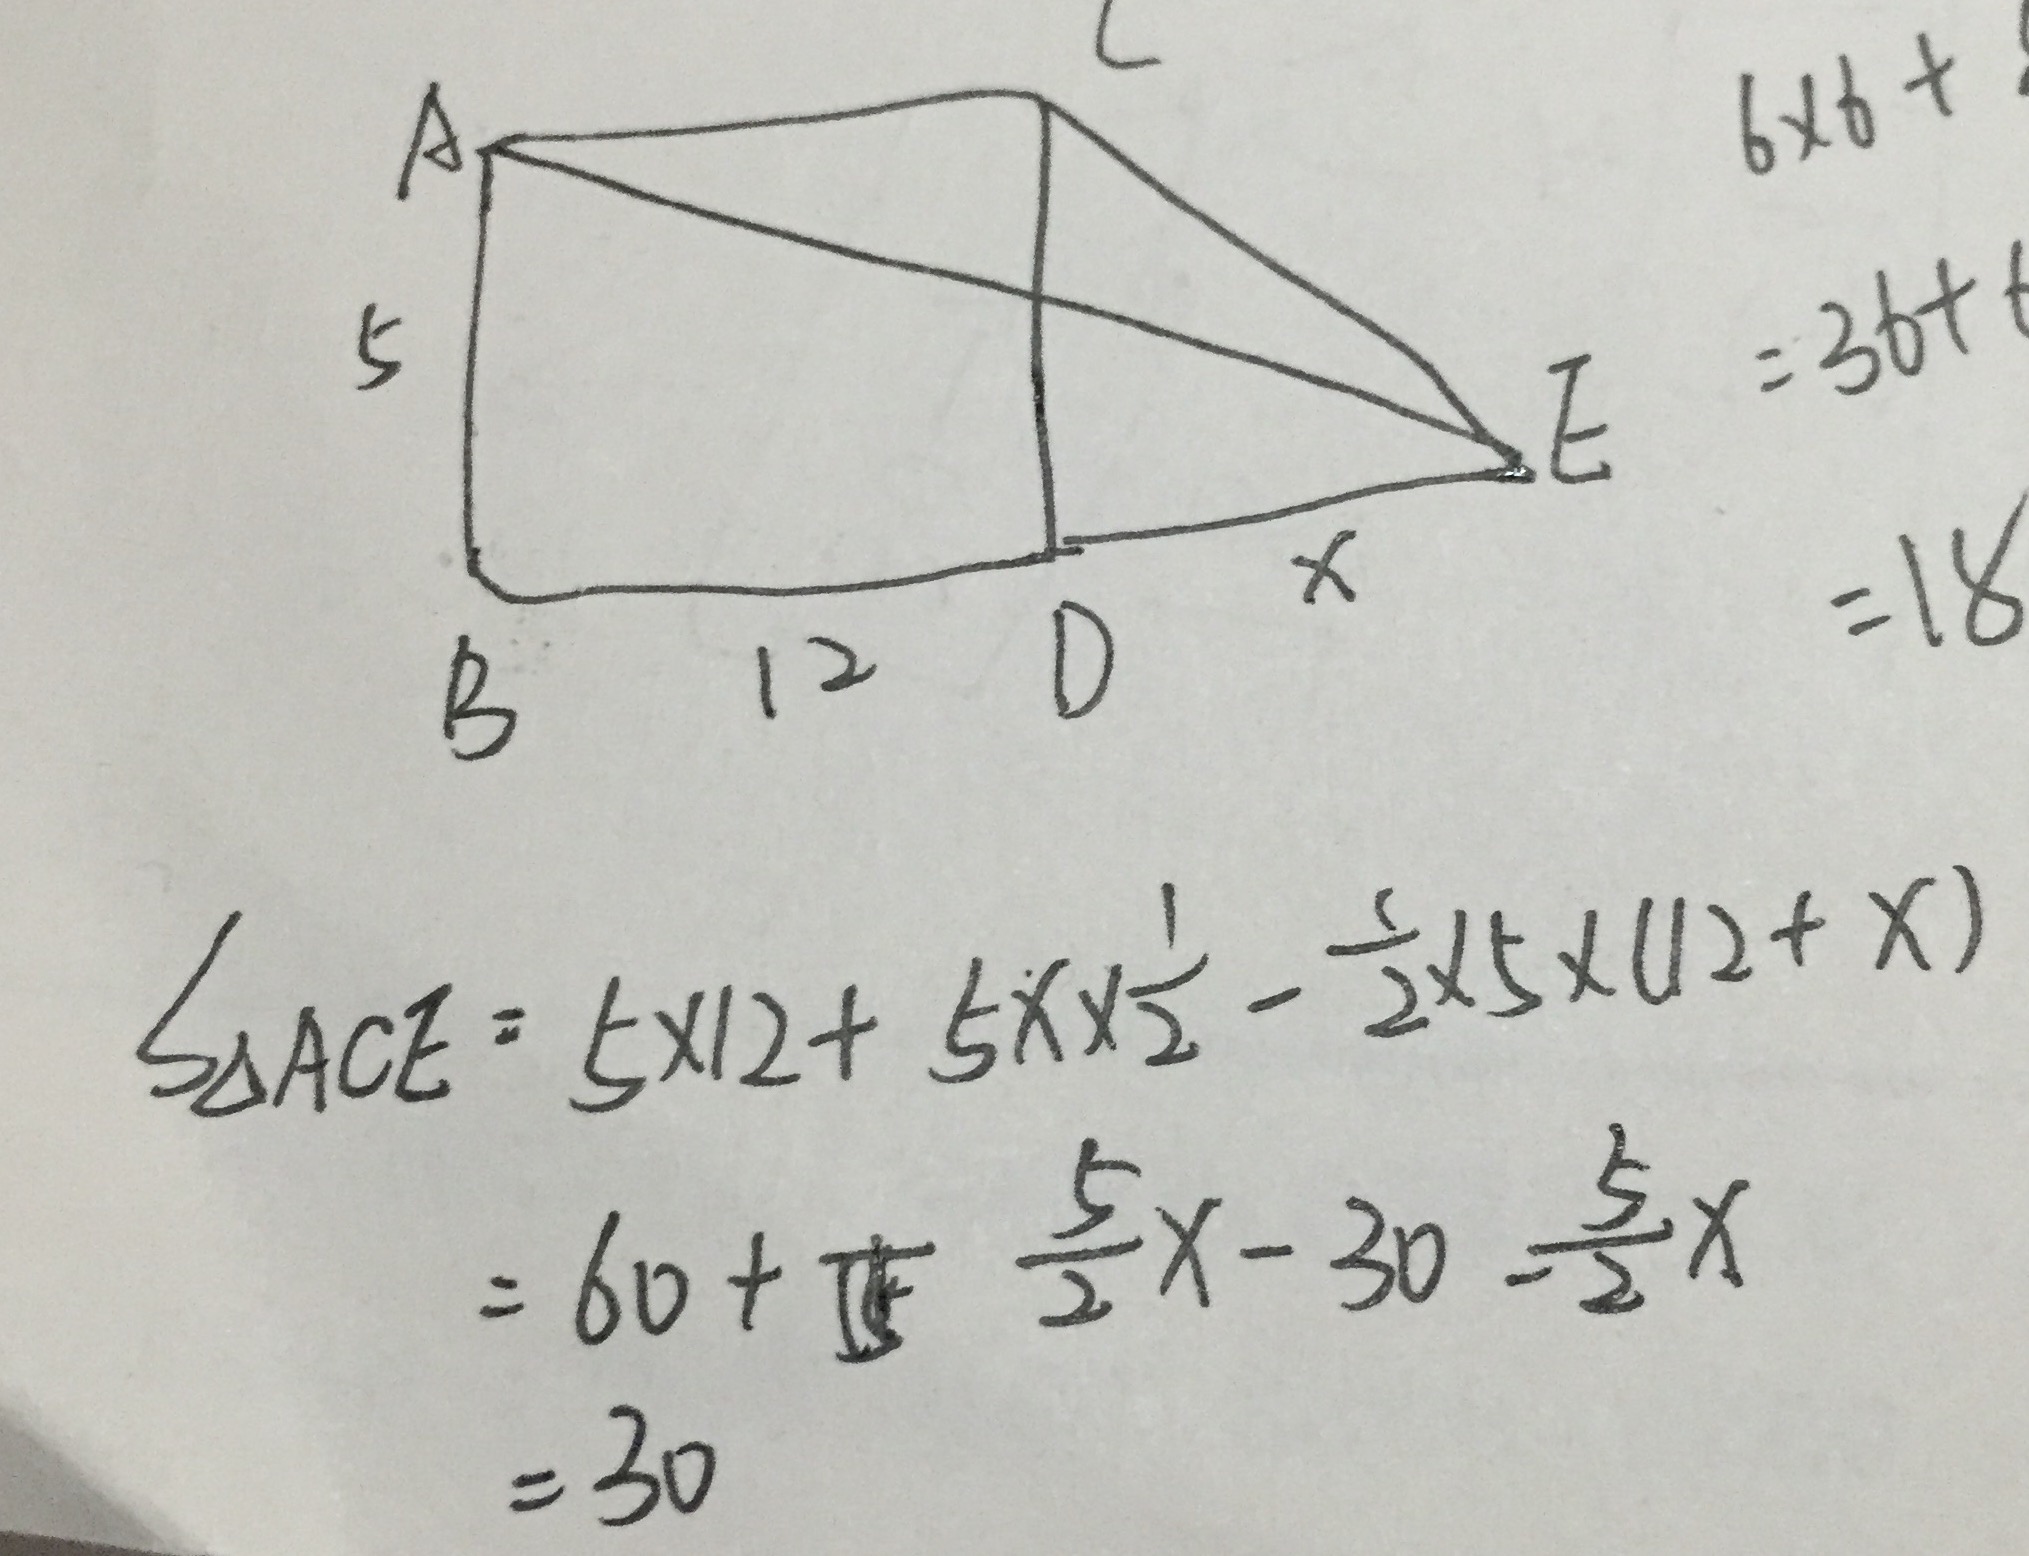 C
A
5
E
x
B 12 D
6×6+
=36+
=18
S△ACE = 5×12+ 5x×1/2 - 1/2×5×(12+x)
= 60 + 5/2x - 30 - 5/2x
= 30